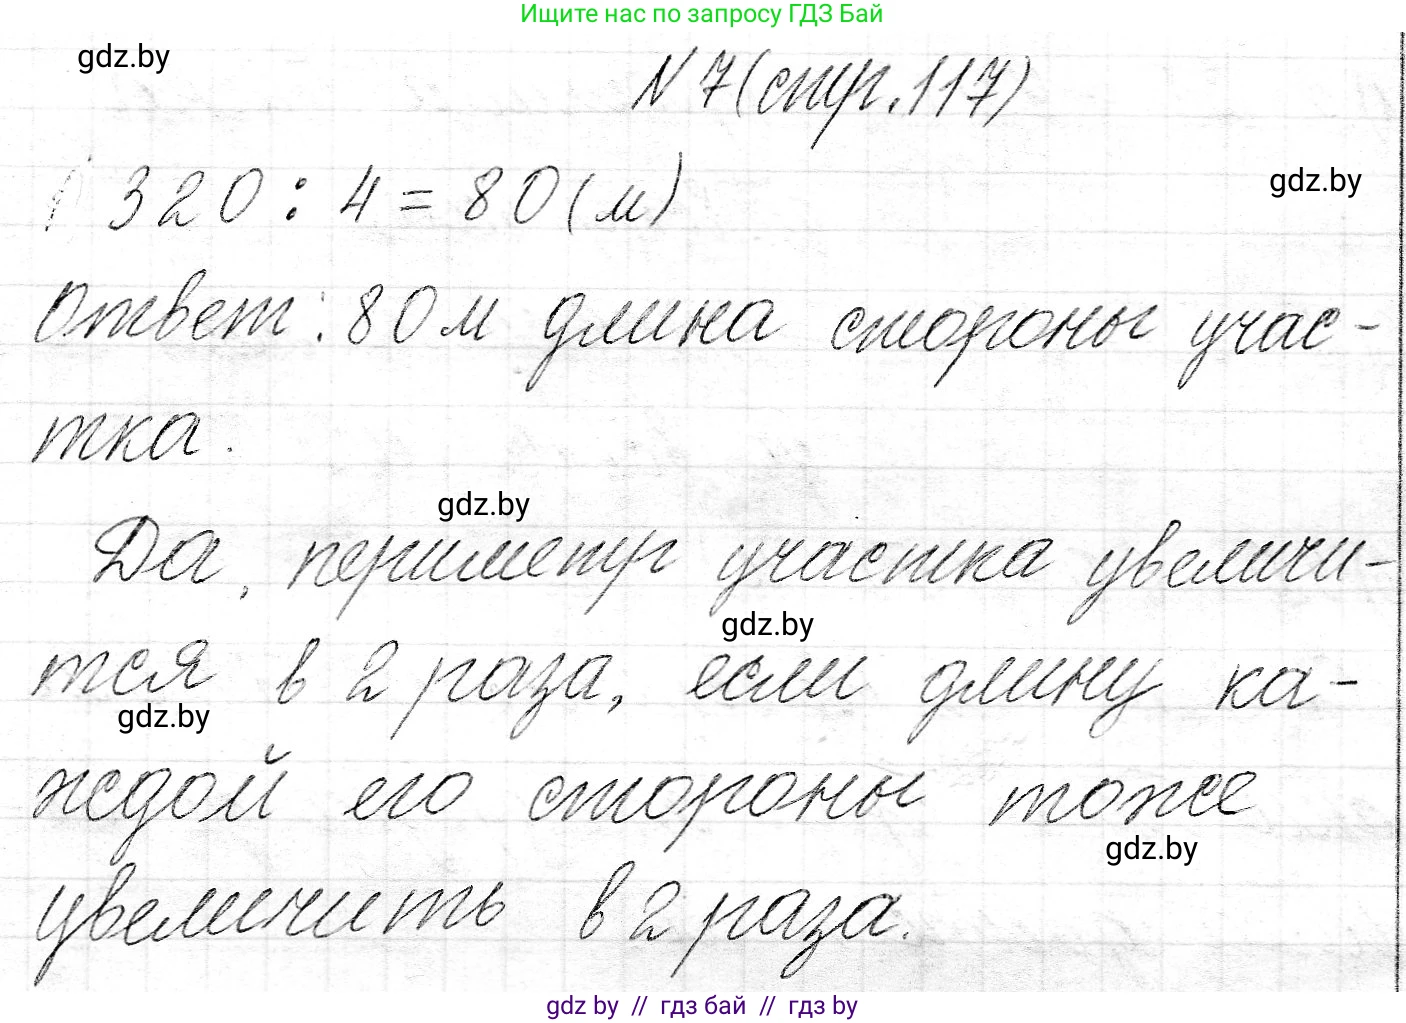 Ищите нас по запросу ГДЗ Бай
gdz.by
N 7 (стр. 117)
1) 320 : 4 = 80 (м)
gdz.by
Ответ: 80 м длина стороны учас-
тка.
gdz.by
Да, периметр участка увеличи-
gdz.by
тся в 2 раза, если длину ка-
gdz.by
ждой его стороны тоже
gdz.by
увеличить в 2 раза.
gdz by // гдз бай // гдз by